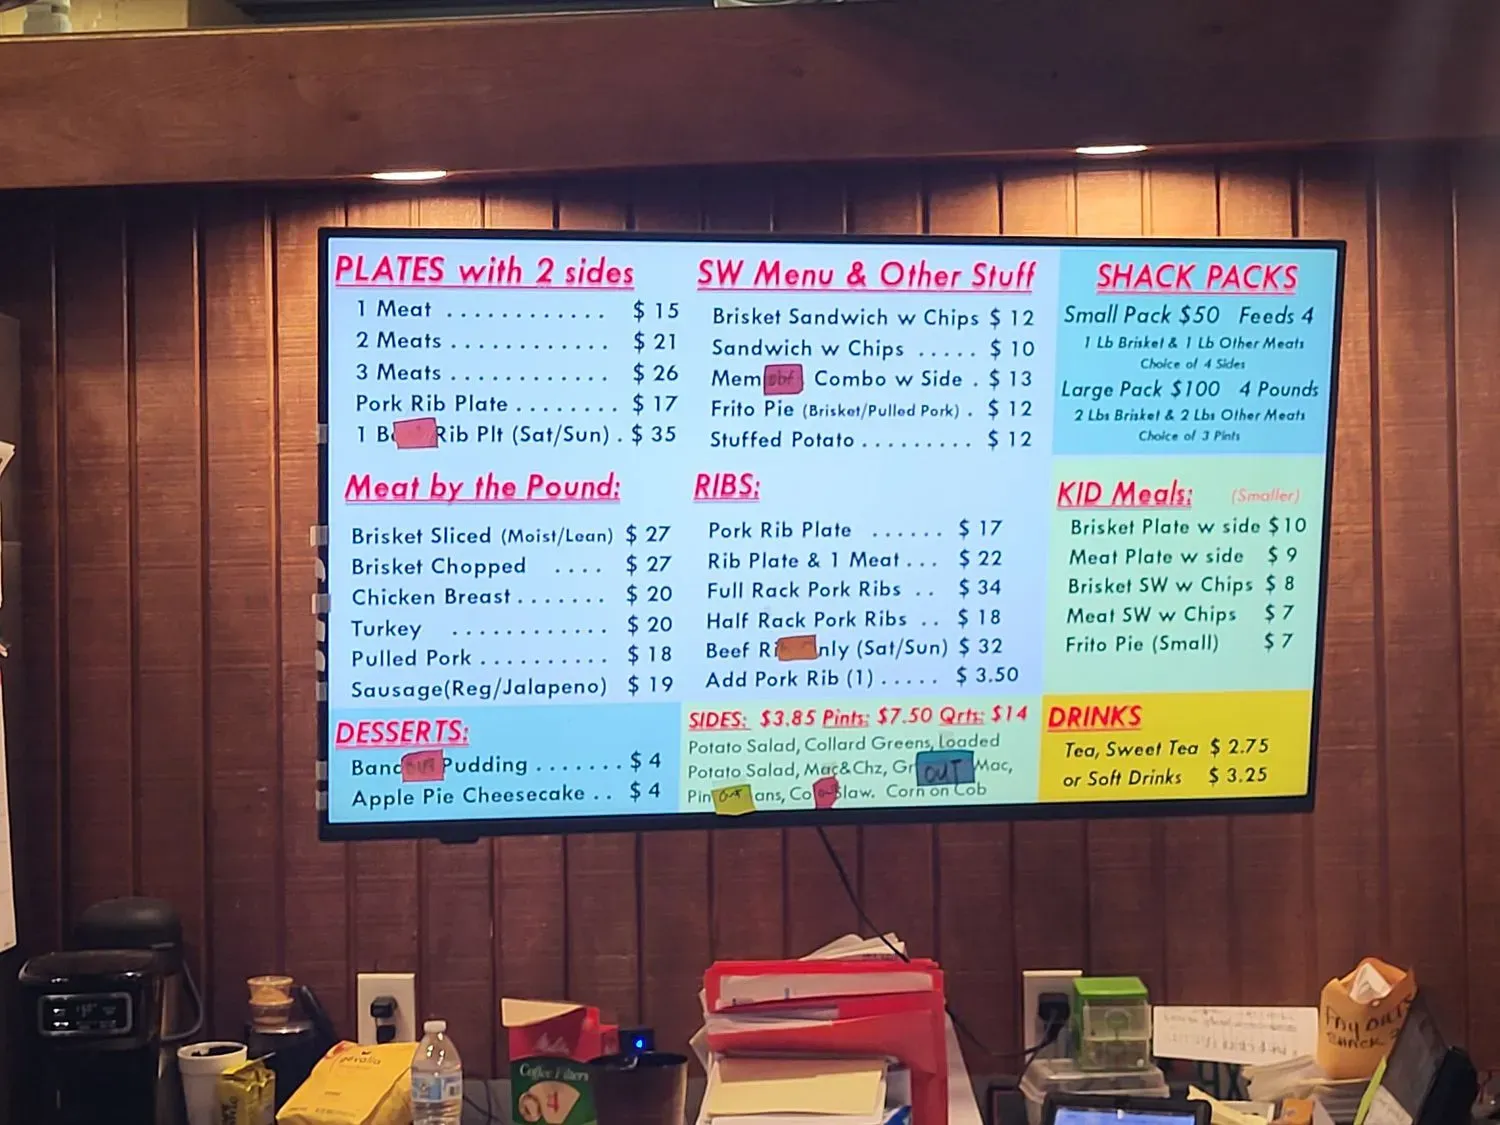 PLATES with 2 sides
1 Meat ............ $ 15
2 Meats ............ $ 21
3 Meats ............ $ 26
Pork Rib Plate ........ $ 17
1 B Rib Plt (Sat/Sun) . $ 35
Meat by the Pound:
Brisket Sliced (Moist/Lean) $ 27
Brisket Chopped .... $ 27
Chicken Breast ....... $ 20
Turkey ............ $ 20
Pulled Pork .......... $ 18
Sausage(Reg/Jalapeno) $ 19
DESSERTS:
Bana OUT Pudding ....... $ 4
Apple Pie Cheesecake .. $ 4
SW Menu & Other Stuff
Brisket Sandwich w Chips $ 12
Sandwich w Chips ..... $ 10
Mem Combo w Side . $ 13
Frito Pie (Brisket/Pulled Pork) . $ 12
Stuffed Potato ......... $ 12
RIBS:
Pork Rib Plate ...... $ 17
Rib Plate & 1 Meat ... $ 22
Full Rack Pork Ribs .. $ 34
Half Rack Pork Ribs .. $ 18
Beef Ri nly (Sat/Sun) $ 32
Add Pork Rib (1) ..... $ 3.50
SIDES: $3.85 Pints: $7.50 Qrts: $14
Potato Salad, Collard Greens, Loaded
Potato Salad, Mac&Chz, Gr OUT Mac,
Pin OUT ans, Co slaw. Corn on Cob
SHACK PACKS
Small Pack $50 Feeds 4
1 Lb Brisket & 1 Lb Other Meats
Choice of 4 Sides
Large Pack $100 4 Pounds
2 Lbs Brisket & 2 Lbs Other Meats
Choice of 3 Pints
KID Meals: (Smaller)
Brisket Plate w side $10
Meat Plate w side $ 9
Brisket SW w Chips $ 8
Meat SW w Chips $ 7
Frito Pie (Small) $ 7
DRINKS
Tea, Sweet Tea $ 2.75
or Soft Drinks $ 3.25
gevalia
Coffee Filters
4